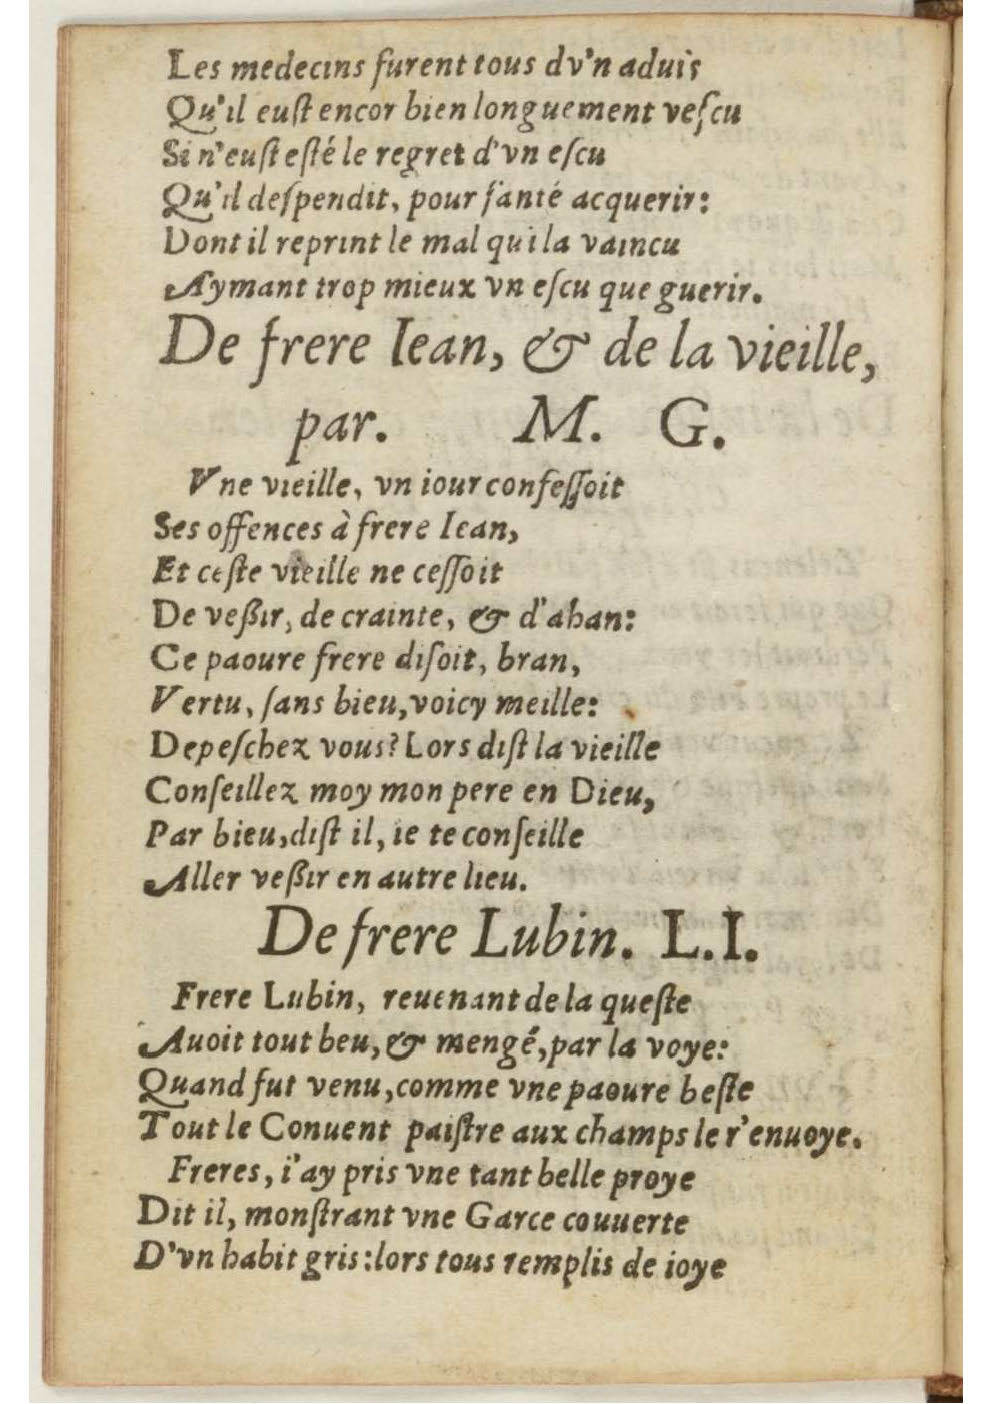 Les medecins furent tous dv'n aduis
Qu'il euſt encor bien longuement veſcu
Si n'euſt eſté le regret d'vn eſcu
Qu'il deſpendit, pour ſanté acquerir:
Dont il reprint le mal qui la vaincu
Aymant trop mieux vn eſcu que guerir.
De frere Iean, & de la vieille,
par. M. G.
Vne vieille, vn iour confeſſoit
Ses offences à frere Iean,
Et ceſte vieille ne ceſſoit
De veßir, de crainte, & d'ahan:
Ce paoure frere diſoit, bran,
Vertu, ſans bieu, voicy meille:
Depeſchez vous? Lors diſt la vieille
Conſeillez moy mon pere en Dieu,
Par bieu, diſt il, ie te conſeille
Aller veßir en autre lieu.
De frere Lubin. L. I.
Frere Lubin, reuenant de la queſte
Auoit tout beu, & mengé, par la voye:
Quand fut venu, comme vne paoure beſte
Tout le Conuent paiſtre aux champs le r'enuoye.
Freres, i'ay pris vne tant belle proye
Dit il, monſtrant vne Garce couuerte
D'vn habit gris: lors tous remplis de ioye